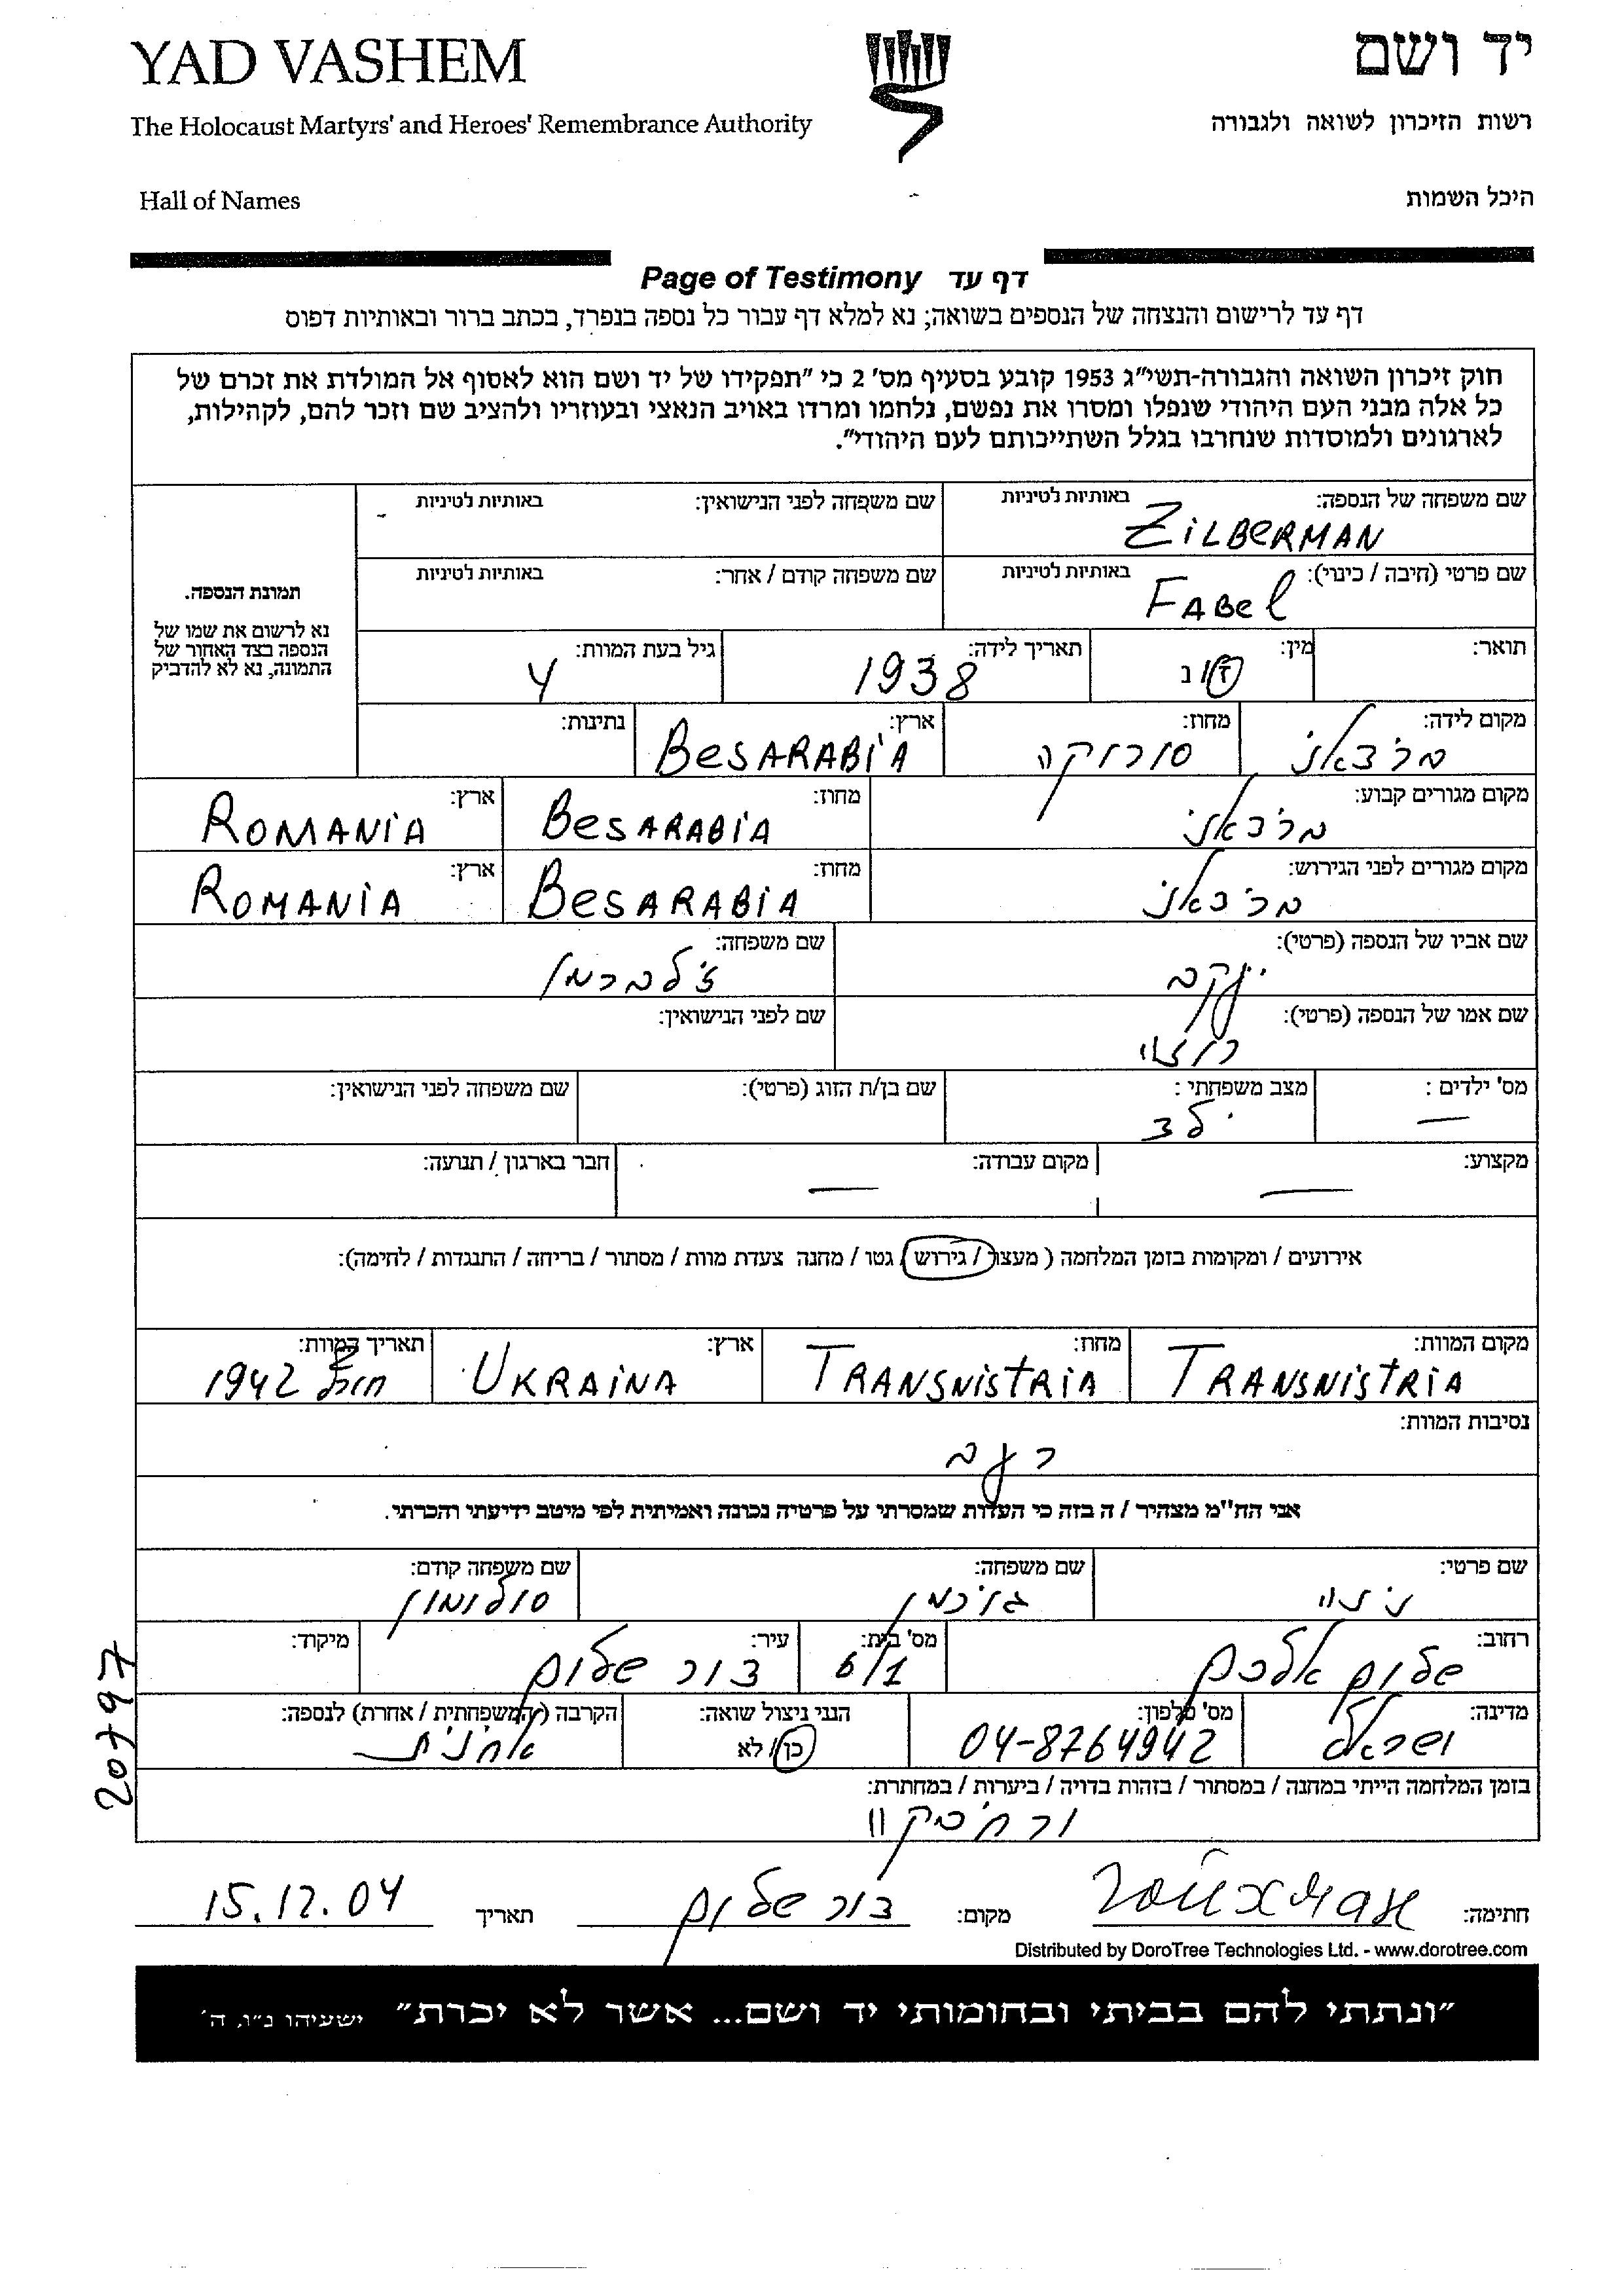 YAD VASHEM יד ושם
The Holocaust Martyrs' and Heroes' Remembrance Authority רשות הזיכרון לשואה ולגבורה
Hall of Names היכל השמות
Page of Testimony דף עד
דף עד לרישום והנצחה של הנספים בשואה; נא למלא דף עבור כל נספה בנפרד, בכתב ברור ובאותיות דפוס
חוק זיכרון השואה והגבורה-תשי"ג 1953 קובע בסעיף מס' 2 כי "תפקידו של יד ושם הוא לאסוף אל המולדת את זכרם של
כל אלה מבני העם היהודי שנפלו ומסרו את נפשם, נלחמו ומרדו באויב הנאצי ובעוזריו ולהציב שם וזכר להם, לקהילות,
לארגונים ולמוסדות שנחרבו בגלל השתייכותם לעם היהודי".
שם משפחה של הנספה: באותיות לטיניות שם משפחה לפני הנישואין: באותיות לטיניות
ZiLBeRMAN
שם פרטי (חיבה / כינוי): באותיות לטיניות שם משפחה קודם / אחר: באותיות לטיניות
FABel
תמונת הנספה.
נא לרשום את שמו של
הנספה בצד האחור של
התמונה, נא לא להדביק
תואר: מין: תאריך לידה: גיל בעת המוות:
ז / נ 1938 4
מקום לידה: מחוז: ארץ: נתינות:
סורוקה BeSARABiA
מקום מגורים קבוע: מחוז: ארץ:
BeSARABiA ROMANiA
מקום מגורים לפני הגירוש: מחוז: ארץ:
BeSARABiA ROMANiA
שם אביו של הנספה (פרטי): שם משפחה:
יעקב זילברמן
שם אמו של הנספה (פרטי): שם לפני הנישואין:
רוזה
מס' ילדים : מצב משפחתי : שם בן/ת הזוג (פרטי): שם משפחה לפני הנישואין:
— ילד
מקצוע: מקום עבודה: חבר בארגון / תנועה:
— —
אירועים / ומקומות בזמן המלחמה ( מעצר / גירוש / גטו / מחנה צעדת מוות / מסתור / בריחה / התנגדות / לחימה):
מקום המוות: מחוז: ארץ: תאריך המוות:
TRANSNiSTRiA TRANSNiSTRiA UKRAiNA חורף 1942
נסיבות המוות:
רעב
אני הח"מ מצהיר / ה בזה כי העדות שמסרתי על פרטיה נכונה ואמיתית לפי מיטב ידיעתי והכרתי.
שם פרטי: שם משפחה: שם משפחה קודם:
ניזה גויכמן סולומון
רחוב: מס' בית: עיר: מיקוד:
שלום אלכם 6/1 צור שלום
מדינה: מס' טלפון: הנני ניצול שואה: הקרבה (המשפחתית / אחרת) לנספה:
ישראל 04-8764942 כן / לא אחינית
בזמן המלחמה הייתי במחנה / במסתור / בזהות בדויה / ביערות / במחתרת:
20797
חתימה: Гойхман מקום: צור שלום תאריך 15.12.04
Distributed by DoroTree Technologies Ltd. - www.dorotree.com
"ונתתי להם בביתי ובחומותי יד ושם... אשר לא יכרת" ישעיהו נ"ו, ה'